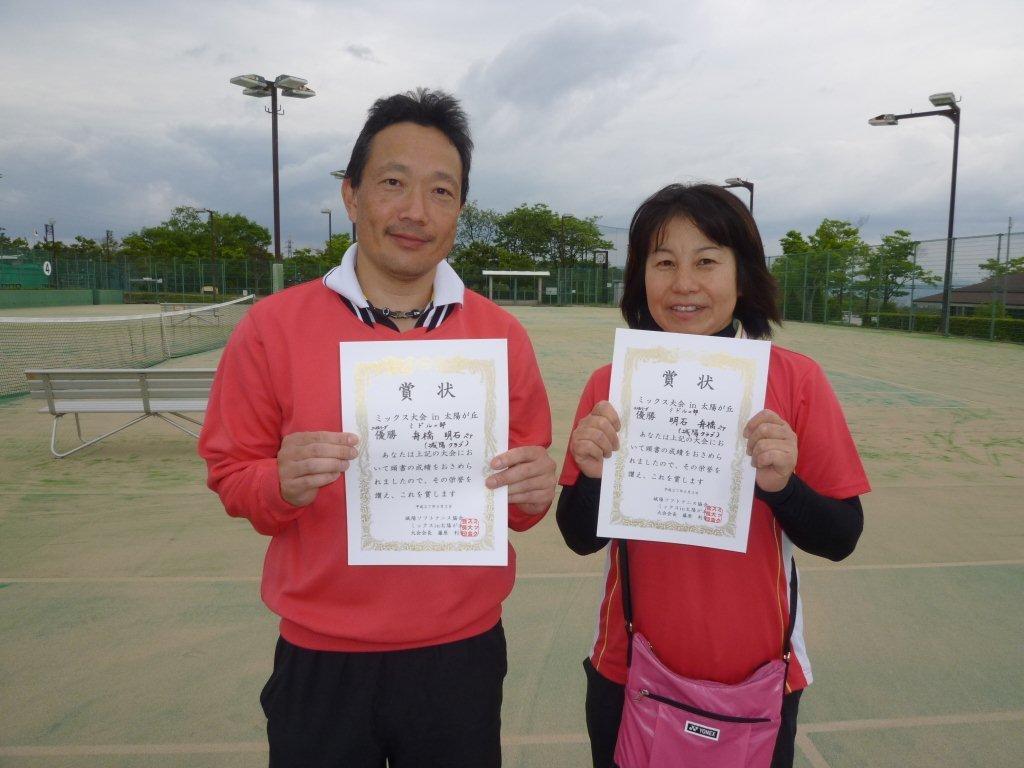 賞状
ミックス大会 in 太陽が丘
ミドルの部
優勝 舟橋 明石 ペア
(城陽クラブ)
あなたは上記の大会にお
いて頭書の成績をおさめら
れましたので、その栄誉を
讃え、これを賞します
城陽ソフトテニス協会
ミックスin太陽が
大会会長 藤原
賞状
ミックス大会 in 太陽が丘
ミドルの部
優勝 明石 舟橋 ペア
(城陽クラブ)
あなたは上記の大会にお
いて頭書の成績をおさめら
れましたので、その栄誉を
讃え、これを賞します
城陽ソフトテニス協会
ミックスin太陽が
大会会長 藤原
YONEX